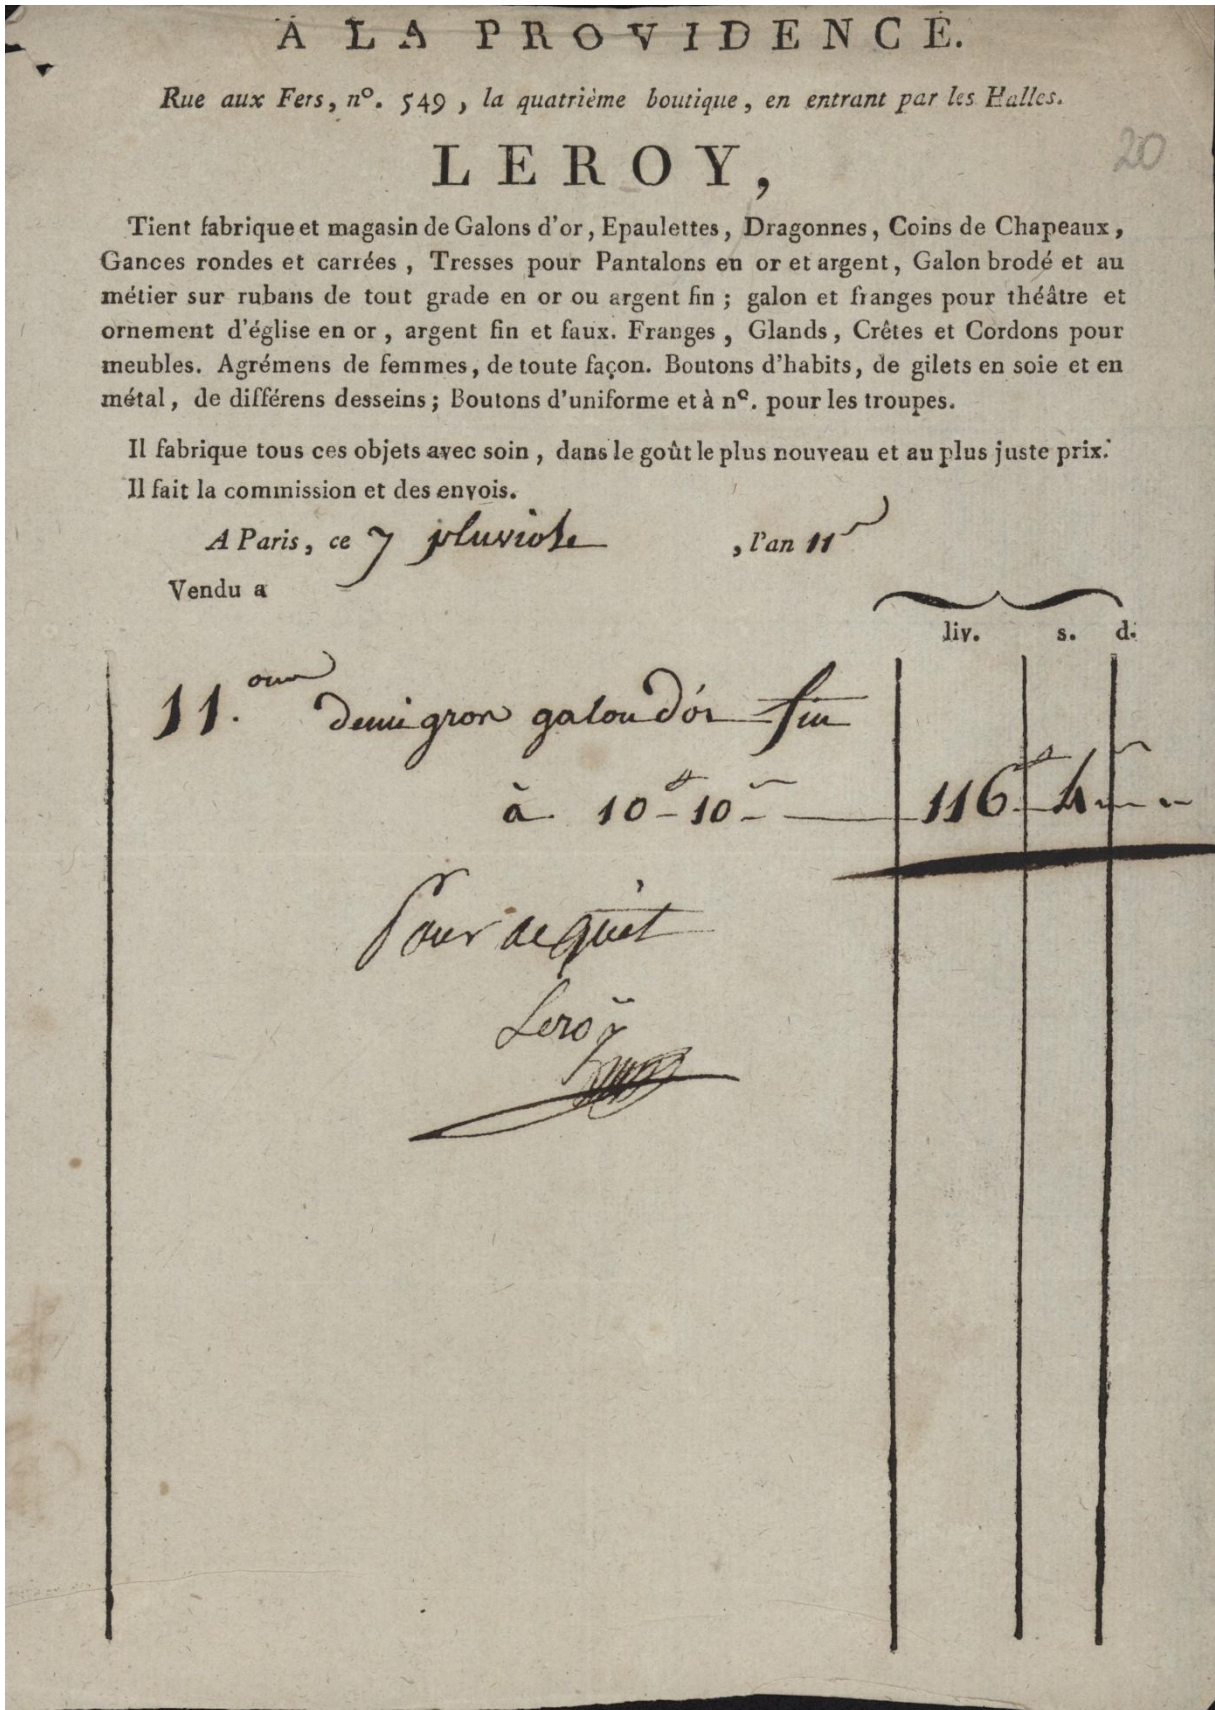 A LA PROVIDENCE.
20
Rue aux Fers, nº. 549, la quatrième boutique, en entrant par les Halles.
LEROY,
Tient fabrique et magasin de Galons d'or, Epaulettes, Dragonnes, Coins de Chapeaux,
Gances rondes et carrées, Tresses pour Pantalons en or et argent, Galon brodé et au
métier sur rubans de tout grade en or ou argent fin; galon et franges pour théâtre et
ornement d'église en or, argent fin et faux. Franges, Glands, Crêtes et Cordons pour
meubles. Agrémens de femmes, de toute façon. Boutons d'habits, de gilets en soie et en
métal, de différens desseins; Boutons d'uniforme et à nº. pour les troupes.
Il fabrique tous ces objets avec soin, dans le goût le plus nouveau et au plus juste prix.
Il fait la commission et des envois.
A Paris, ce 7 pluviose, l'an 11
Vendu a
liv. s. d.
11. demi gros galon d'or fin
à 10 - 10 - 116 4
Pour acquit
Leroÿ